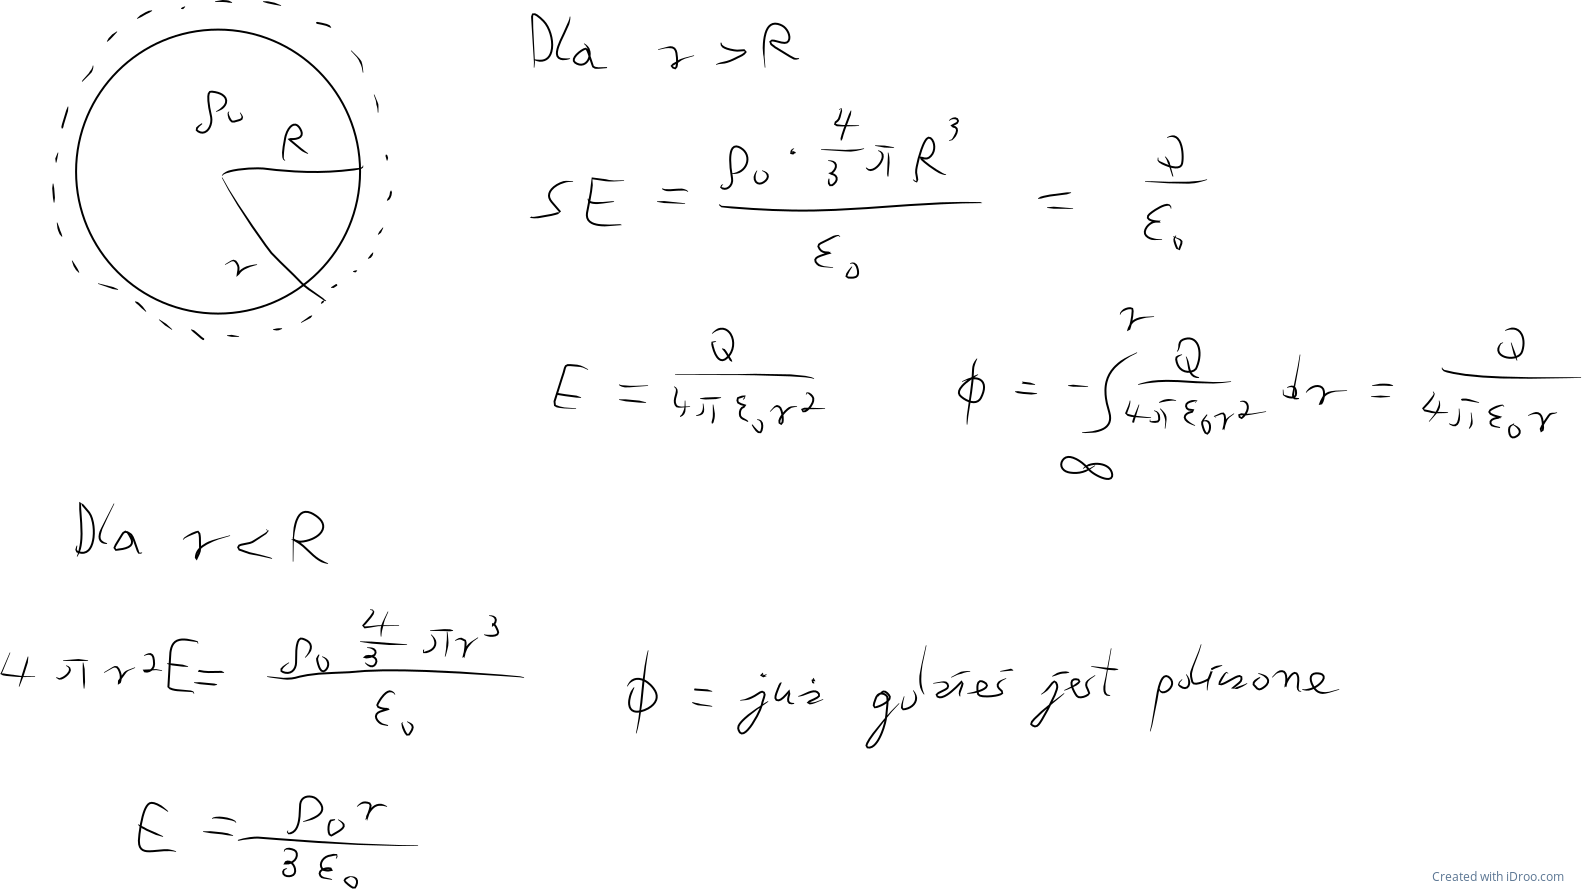 ρ₀
R
r
Dla r > R
SE = (ρ₀ · 4/3 π R³)/ε₀ = Q/ε₀
E = Q/(4πε₀r²) ϕ = -∫_∞^r Q/(4πε₀r²) dr = Q/(4πε₀r)
Dla r < R
4πr²E = (ρ₀ 4/3 πr³)/ε₀ ϕ = już gdzieś jest policzone
E = ρ₀r/(3ε₀)
Created with iDroo.com